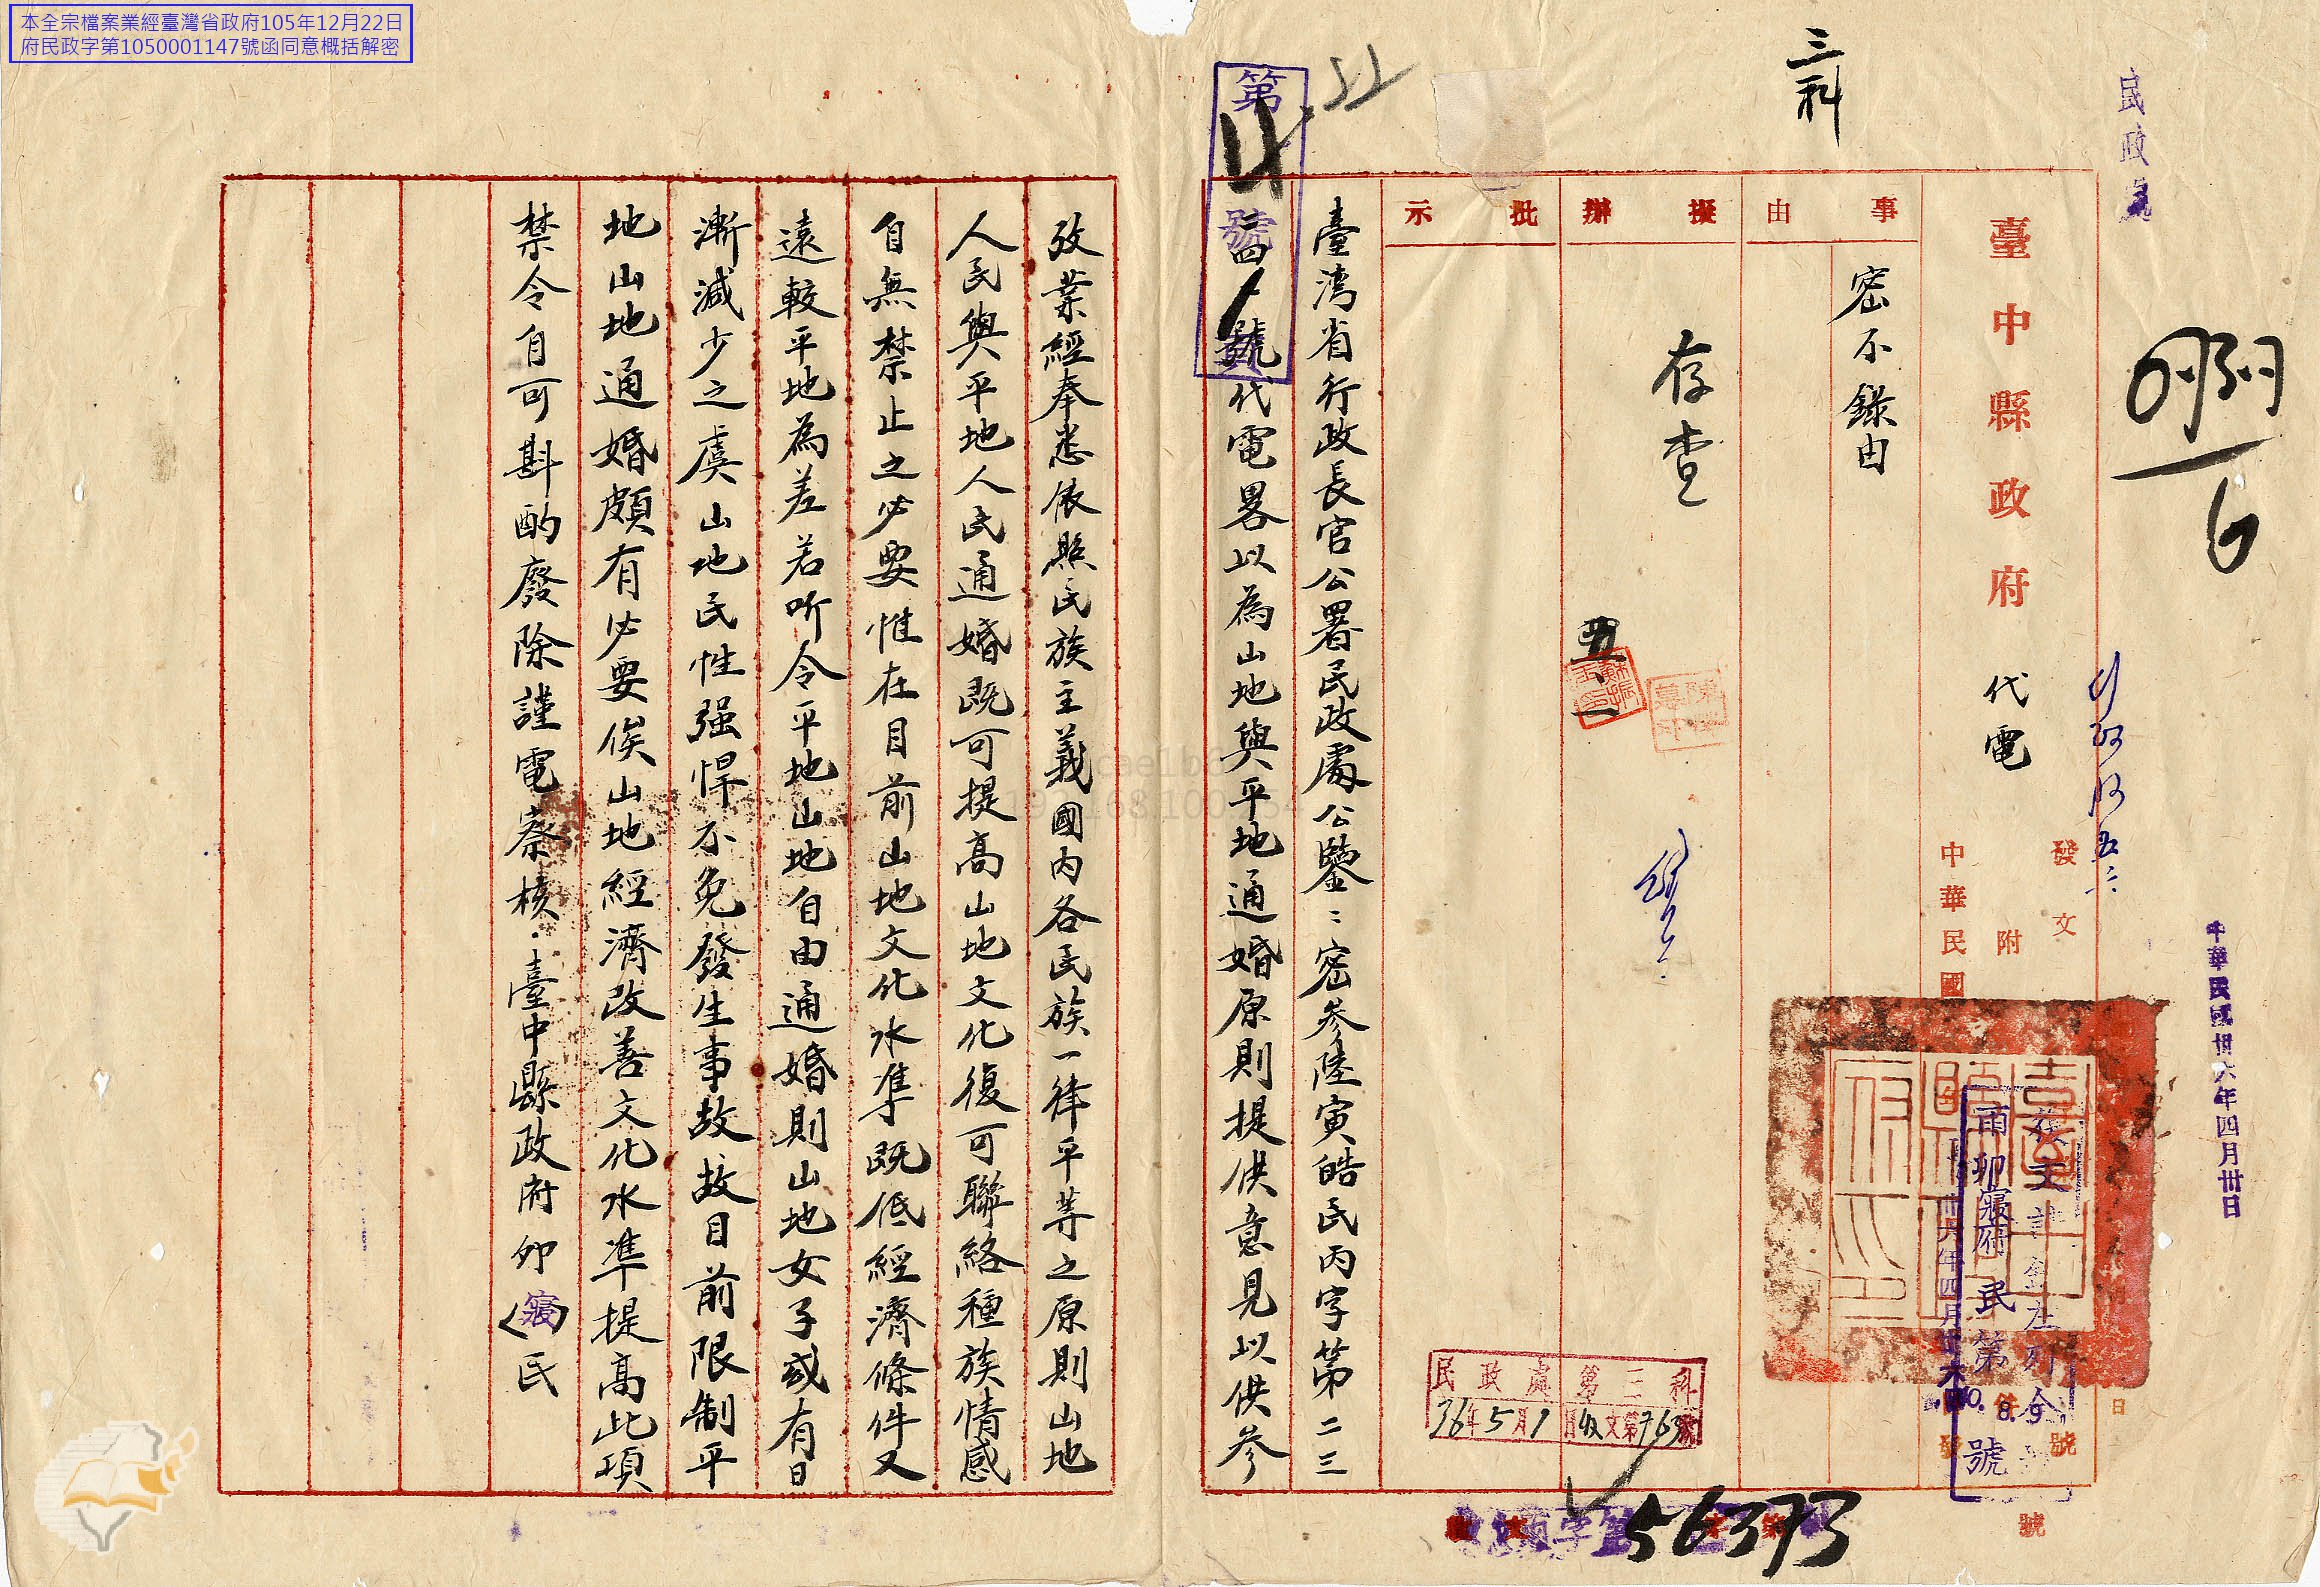 本全宗檔案業經臺灣省政府105年12月22日
府民政字第1050001147號函同意概括解密
民政處
三科
臺中縣政府 代電
發文
附
中華民國卅六年四月廿六日發
中華民國卅六年四月卅日
事由
密不錄由
擬辦
存查
五、一
批示
府民第
號
臺湾省行政長官公署民政處公鑒:密參陸寅皓民丙字第二三
二四號代電畧以為山地與平地通婚原則提供意見以供參
攷業經奉悉依照民族主義國内各民族一律平等之原則山地
人民與平地人民通婚既可提高山地文化復可聯絡種族情感
自無禁止之必要惟在目前山地文化水準既低經濟條件又
遠較平地為差若听令平地山地自由通婚則山地女子或有日
漸減少之虞山地民性强悍不免發生事故故目前限制平
地山地通婚頗有必要俟山地經濟改善文化水準提高此項
禁令自可斟酌廢除謹電察核.臺中縣政府卯(寢)民
第
號
民政處第三科
36年5月1日收文第763號
56373
號